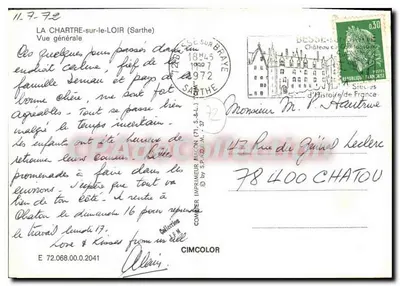 11.7.72
LA CHARTRE-sur-le-LOIR (Sarthe)
Vue générale
Ces quelques jours passés dans un
endroit calme, fief de la
famille et pays de
bonne chère, ne sont fort
agréables. Tout se passe bien
malgré le temps incertain.
Les enfants ont été heureux de
retrouver leurs cousins. Belles
promenades à faire dans les
environs. J'espère que tout va
bien de ton côté. Je rentre à
Chatou le dimanche 16 pour reprendre
le travail lundi 17.
Love & Kisses from us all
Alain
E 72.068.00.0.2041
CIMCOLOR
COMBIER IMPRIMEUR MACON
18H45
1972
SARTHE
BESSE-sur-BRAYE
Château
Siècles
d'Histoire de France
0,30
Monsieur M. P. Hautrive
47 Rue du Général Leclerc
78400 CHATOU